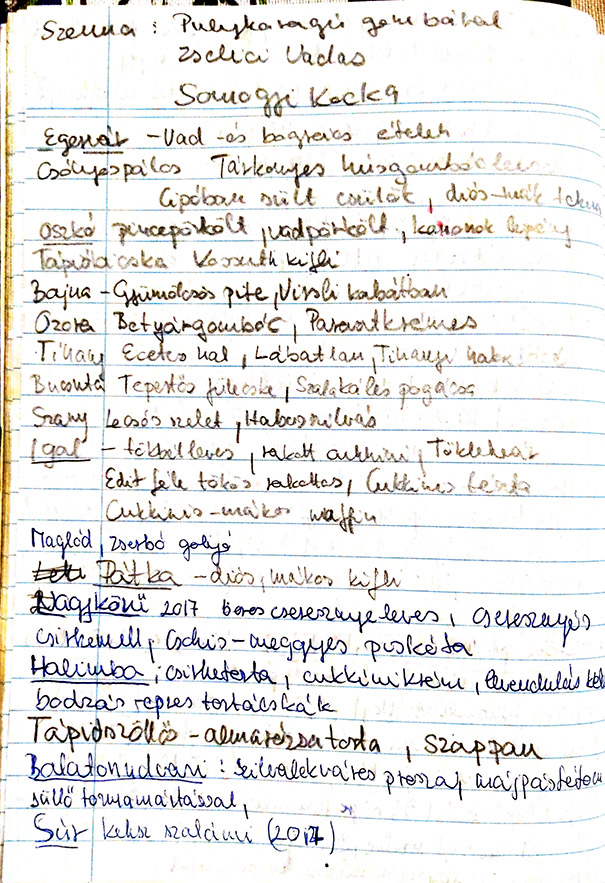 Szenna : Pulykaragu gombával
Zselici Vadas
Somogyi Kocka
Egervár - Vad - és bogrács ételek
Csólyospálos Tárkonyos húsgombócleves
Cipóban sült csülök, diós-mák
Oszkó pincepörkölt, vadpörkölt, kanonok lepény
Tápióbicske Kossuth kifli
Bajna - Gyümölcsös pite, Virsli kabátban
Ozora Betyárgombóc, Parasztkrémes
Tihany Ecetes hal, Lábatlan, Tihanyi
Bucsuta Tepertős fülecske, Szalakális pogácsa
Szany Lecsós szelet, Habos szilvás
Igal - töksült leves, rakott cukkini,
Edit féle tökös rakottas, Cukkinis tészta
Cukkinis - mákos muffin
Maglód, Zserbó golyó
Pátka - diós, mákos kifli
Nagykónyi 2017 boros cseresznyeleves, cseresznyés
csirkemell, Csokis - meggyes piskóta
Halimba, csirketorta, cukkinikrém, levendulás
bodzás repres tortácskák
Tápiószőllős - almarózsa torta, szappan
Balatonudvari : szilvalekváros májpástétom
süllő tormamártással,
Súr keksz szalámi (2017)